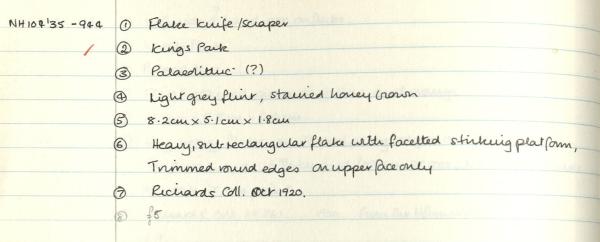 NH104'35 - 944 ① Flake knife/scraper
② Kings Park
③ Palaeolithic (?)
④ Light grey flint, stained honey brown
⑤ 8.2cm x 5.1cm x 1.8cm
⑥ Heavy, subrectangular flake with facetted striking platform,
Trimmed round edges on upper face only
⑦ Richards Coll. Oct 1920.
⑧ £5